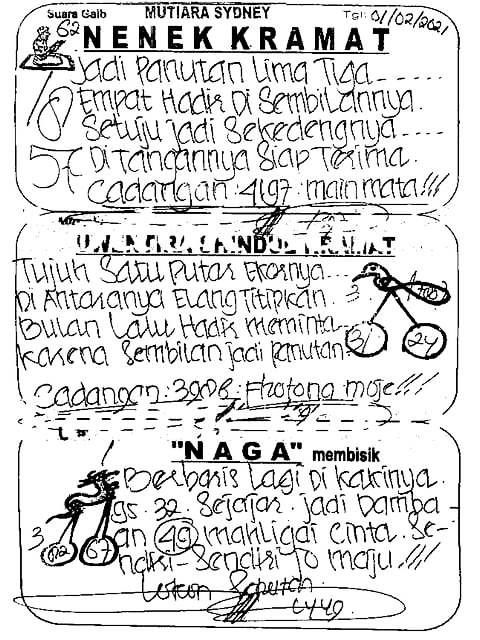 Suara Gaib MUTIARA SYDNEY Tgl: 01/02/2021
62
NENEK KRAMAT
Jadi Panutan Lima Tiga-----
18 Empat Hadir Di Sembilannya.
Setuju jadi Sekedengnya----
57 Di Tangannya Siap Terima.
Cadangan: 4197: main mata!!!
KRAMAT
Tujuh Satu Putar Ekornya---
Di Antaranya Elang Titipkan. 3
Bulan Lalu Hadir meminta--- 31 24
Karena Sembilan jadi panutan.
Cadangan: 3908
"NAGA" membisik
Berbaris Lagi Di kakinya.
gs. 32. Sejajar. jadi bamba-
an 49 mahligai cinta. Se-
3 67
ndiri-Sendiri JO maju.!!!